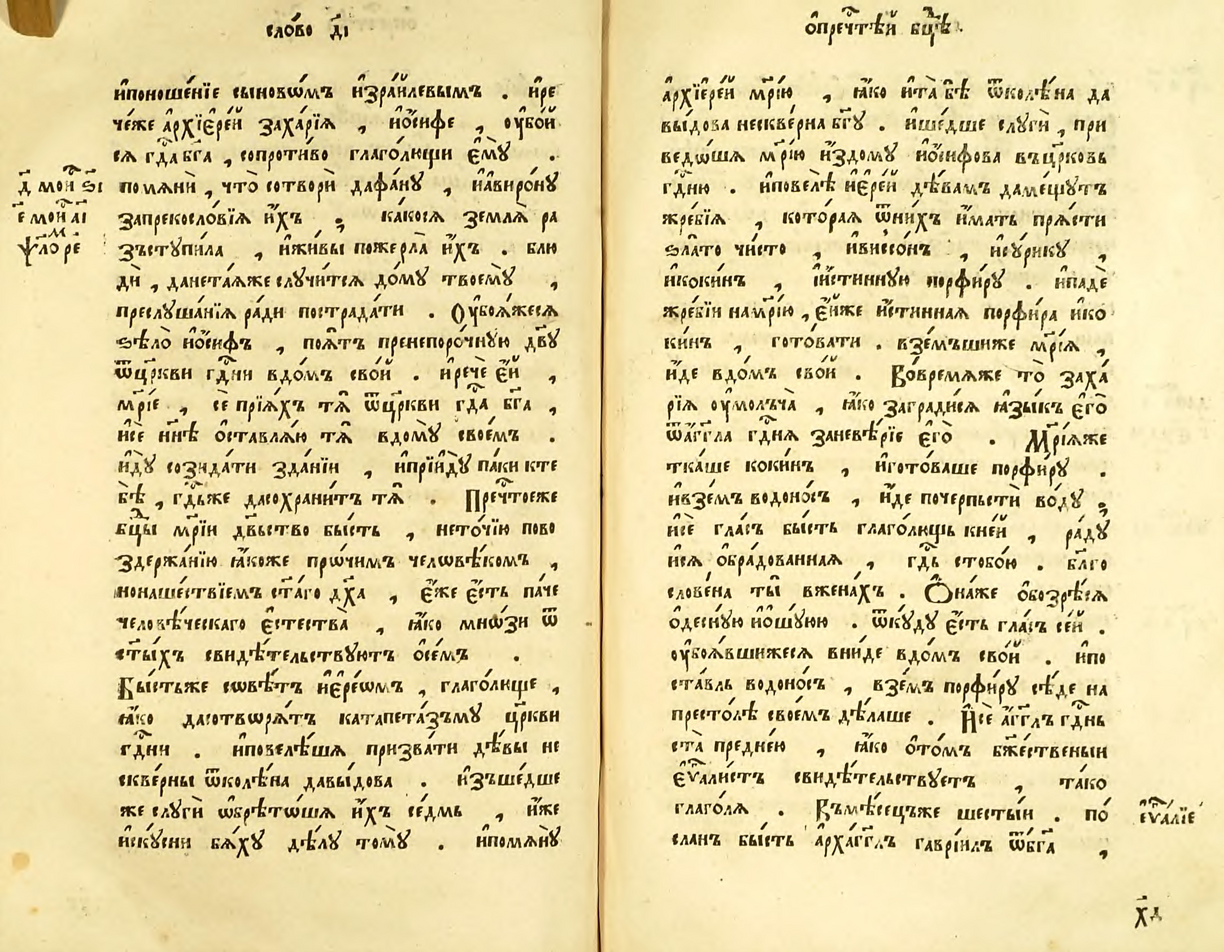 сло́во д҃і
и҆поноше́нїе сыновѡ́мъ и҆зра́илевымъ . и҆ре
че́же а҆рхїере́й заха́рїѧ , и҆ѡ́сифе , оу҆бо́й
сѧ гд҃а бг҃а , сопроти́во глаго́лющи є҆мꙋ̀ .
помѧнѝ , что̀ сотворѝ даѳа́нꙋ , и҆авиро́нꙋ
запрекосло́вїѧ и҆́хъ ; ка́коcѧ землѧ̀ ра
зъстꙋпи́ла , и҆жи́вы пожерла̀ и҆́хъ . блю
дѝ , данета́ѧже слꙋчи́тсѧ до́мꙋ твоемꙋ̀ ,
преслꙋша́нїѧ ра́ди пострада́ти . Оу҆боѧ́жесѧ
ѕѣло̀ и҆ѡ́сифъ , поѧ́тъ пренепоро́чнꙋю дв҃ꙋ
ѿцр҃кви гд҃ни вдо́мъ сво́й . и҆речѐ є҆́й ,
мр҃іе , сѐ прїѧ́хъ тѧ̀ ѿцр҃кви гд҃а бг҃а ,
и҆сѐ нн҃ѣ ѡ҆ставлѧ́ю тѧ̀ вдомꙋ̀ свое́мъ .
и҆дꙋ̀ созида́ти зда́нїи , и҆прїидꙋ̀ па́ки кте
бѣ̀ , гд҃ьже дасохрани́тъ тѧ̀ . Пречт҃оеже
бц҃ы мр҃іи дв҃ьство бы́сть , нето́чїю пово
здержа́нїю ꙗ҆́коже про́чимъ человѣ́комъ ,
нонаше́ствїемъ ст҃а́го дх҃а , є҆́же є҆́сть па́че
человѣ́ческаго є҆стества̀ , ꙗ҆́ко мно́зи ѿ
ст҃ы́хъ свидѣ́тельствꙋютъ ѻ҆се́мъ .
Бы́стьже совѣ́тъ и҆ере́ѡмъ , глаго́люще ,
ꙗ҆́ко дасотворѧ́тъ катапета́зъмꙋ цр҃кви
гд҃ни . и҆повелѣ́ша призва́ти дѣ́вы не
скве́рны ѿколѣ́на давы́дова . и҆зъше́дше
же слꙋгѝ ѡ҆брѣто́шѧ и҆́хъ се́дмь , и҆́же
и҆скꙋ́сни бѧ́хꙋ дѣ́лꙋ томꙋ̀ . и҆помѧнꙋ̀
д҃ мѡи ѕ҃і
є҃ мѡи а҃і
ѱало ре
ѡ҆пречт҃ѣй бц҃ѣ .
а҆рхїере́й мр҃ію , ꙗ҆́ко и҆та̀ бѣ̀ ѿколѣ́на да
вы́дова нескве́рна бг҃ꙋ . и҆ше́дше слꙋгѝ , при
ведо́шѧ мр҃ію и҆здо́мꙋ и҆ѡ́сифова въцр҃ковь
гд҃ню . и҆повелѣ̀ и҆ере́й дѣ́вамъ даме́щꙋтъ
жре́бїѧ , кото́раѧ ѿни́хъ и҆́мать прѧ́сти
ѕла́то чи́сто , и҆виссо́нъ , и҆сѵ́рикꙋ ,
и҆коки́нъ , и҆и҆́стиннꙋю порфи́рꙋ . и҆падѐ
жре́бїи намр҃ію , є҆́йже и҆́стиннаѧ порфи́ра и҆ко
ки́нъ , гото́вати . взе́мъшиже мр҃іѧ ,
и҆́де вдо́мъ сво́й . Во́времѧже то̀ заха́
рїѧ оу҆молъча̀ , ꙗ҆́ко загради́сѧ ꙗ҆зы́къ є҆гѡ̀
ѿа҆́гг҃ла гд҃нѧ заневѣ́рїе є҆гѡ̀ . Мр҃іѧже
тка́ше коки́нъ , и҆гото́ваше порфи́рꙋ .
и҆взе́мъ водоно́съ , и҆́де почерпьстѝ во́дꙋ ,
и҆сѐ гла́съ бы́сть глаго́лющь кне́й , ра́дꙋ
и҆сѧ ѡ҆бра́дованнаѧ , гд҃ь стобо́ю . бл҃го
слове́на ты̀ вжена́хъ . Ѻ҆на́же ѡ҆бозрѣ́сѧ
ѻ҆десну́ю и҆ѡ҆шꙋ́юю . ѿкꙋ́дꙋ є҆́сть гла́съ се́й .
оу҆боѧ́вшижесѧ вни́де вдо́мъ сво́й . и҆по
ста́вль водоно́съ , взе́мъ порфи́рꙋ сѣ́де на
престо́лѣ свое́мъ дѣ́лаше . И҆сѐ а҆́гг҃лъ гд҃нь
ста̀ предне́ю , ꙗ҆́ко ѻ҆то́мъ бж҃ественыи
є҆ѵа҃листъ свидѣ́тельствꙋетъ , та́ко
глаго́лѧ . Въмѣ́сецъже шесты́и . по́
сланъ бы́сть а҆рха́гг҃лъ гаврїи́лъ ѿбг҃а ,
є҆ѵа҃лїе
х҃д